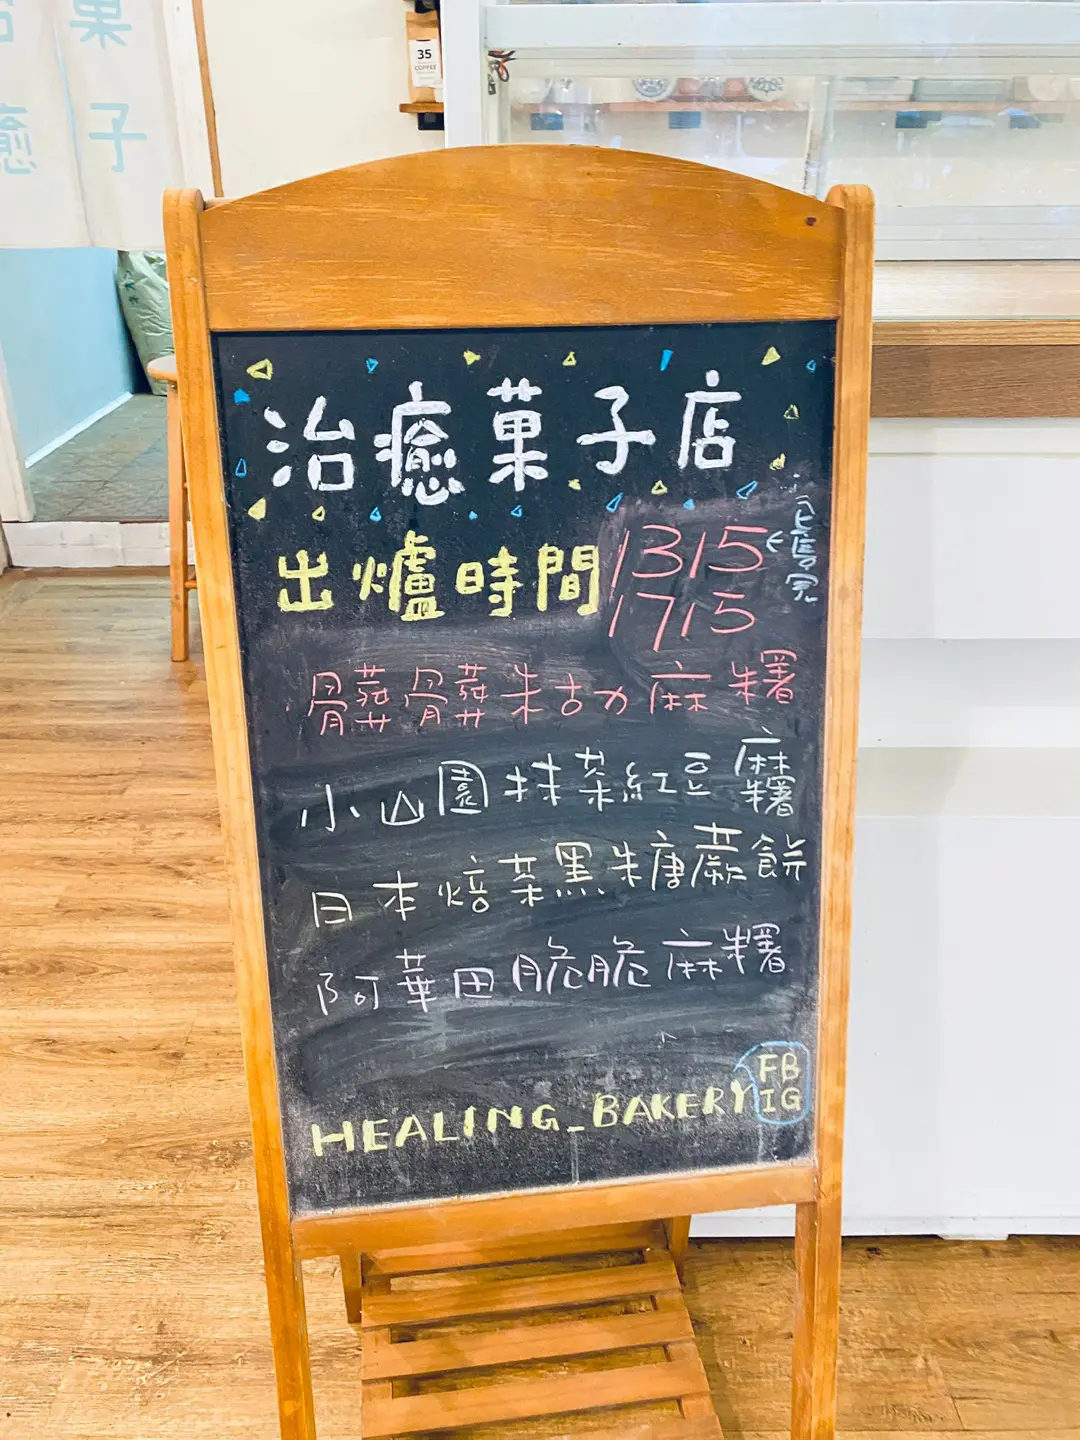 菓子
癒
35
COFFEE
治癒菓子店
出爐時間 1315 ←已售完
1715
髒髒朱古力麻糬
小山園抹茶紅豆麻糬
日本焙茶黑糖蕨餅
阿華田脆脆麻糬
HEALING_BAKERY FB IG